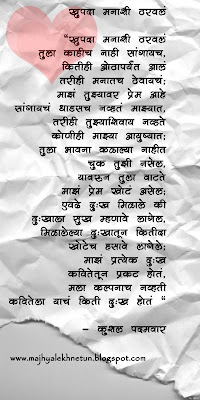 खुपदा मनाशी ठरवलं
"खुपदा मनाशी ठरवलं
तुला काहीच नाही सांगायच,
कितीही ओठापर्यंत आलं
तरीही मनातच ठेवायचं;
माझं तुझ्यावर प्रेम आहे
सांगायचं धाडसच नव्हतं माझ्यात,
तरीही तुझ्याशिवाय नव्हते
कोणीही माझ्या आयुष्यात;
तुला भावना कळाल्या नाहीत
चुक तुझी नसेल,
यावरुन तुला वाटते
माझं प्रेम खोटं असेल;
एवढे दुःख मिळाले की
दुःखाला सुख म्हणावे लागेल,
मिळालेल्या दुःखातून कितीदा
खोटेच हसावे लागेल;
माझं प्रत्येक दुःख
कवितेतून प्रकट होतं,
मला कल्पनाच नव्हती
कवितेला याचं किती दुःख होतं "
- कुशल पदमवार
www.majhyalekhnetun.blogspot.com